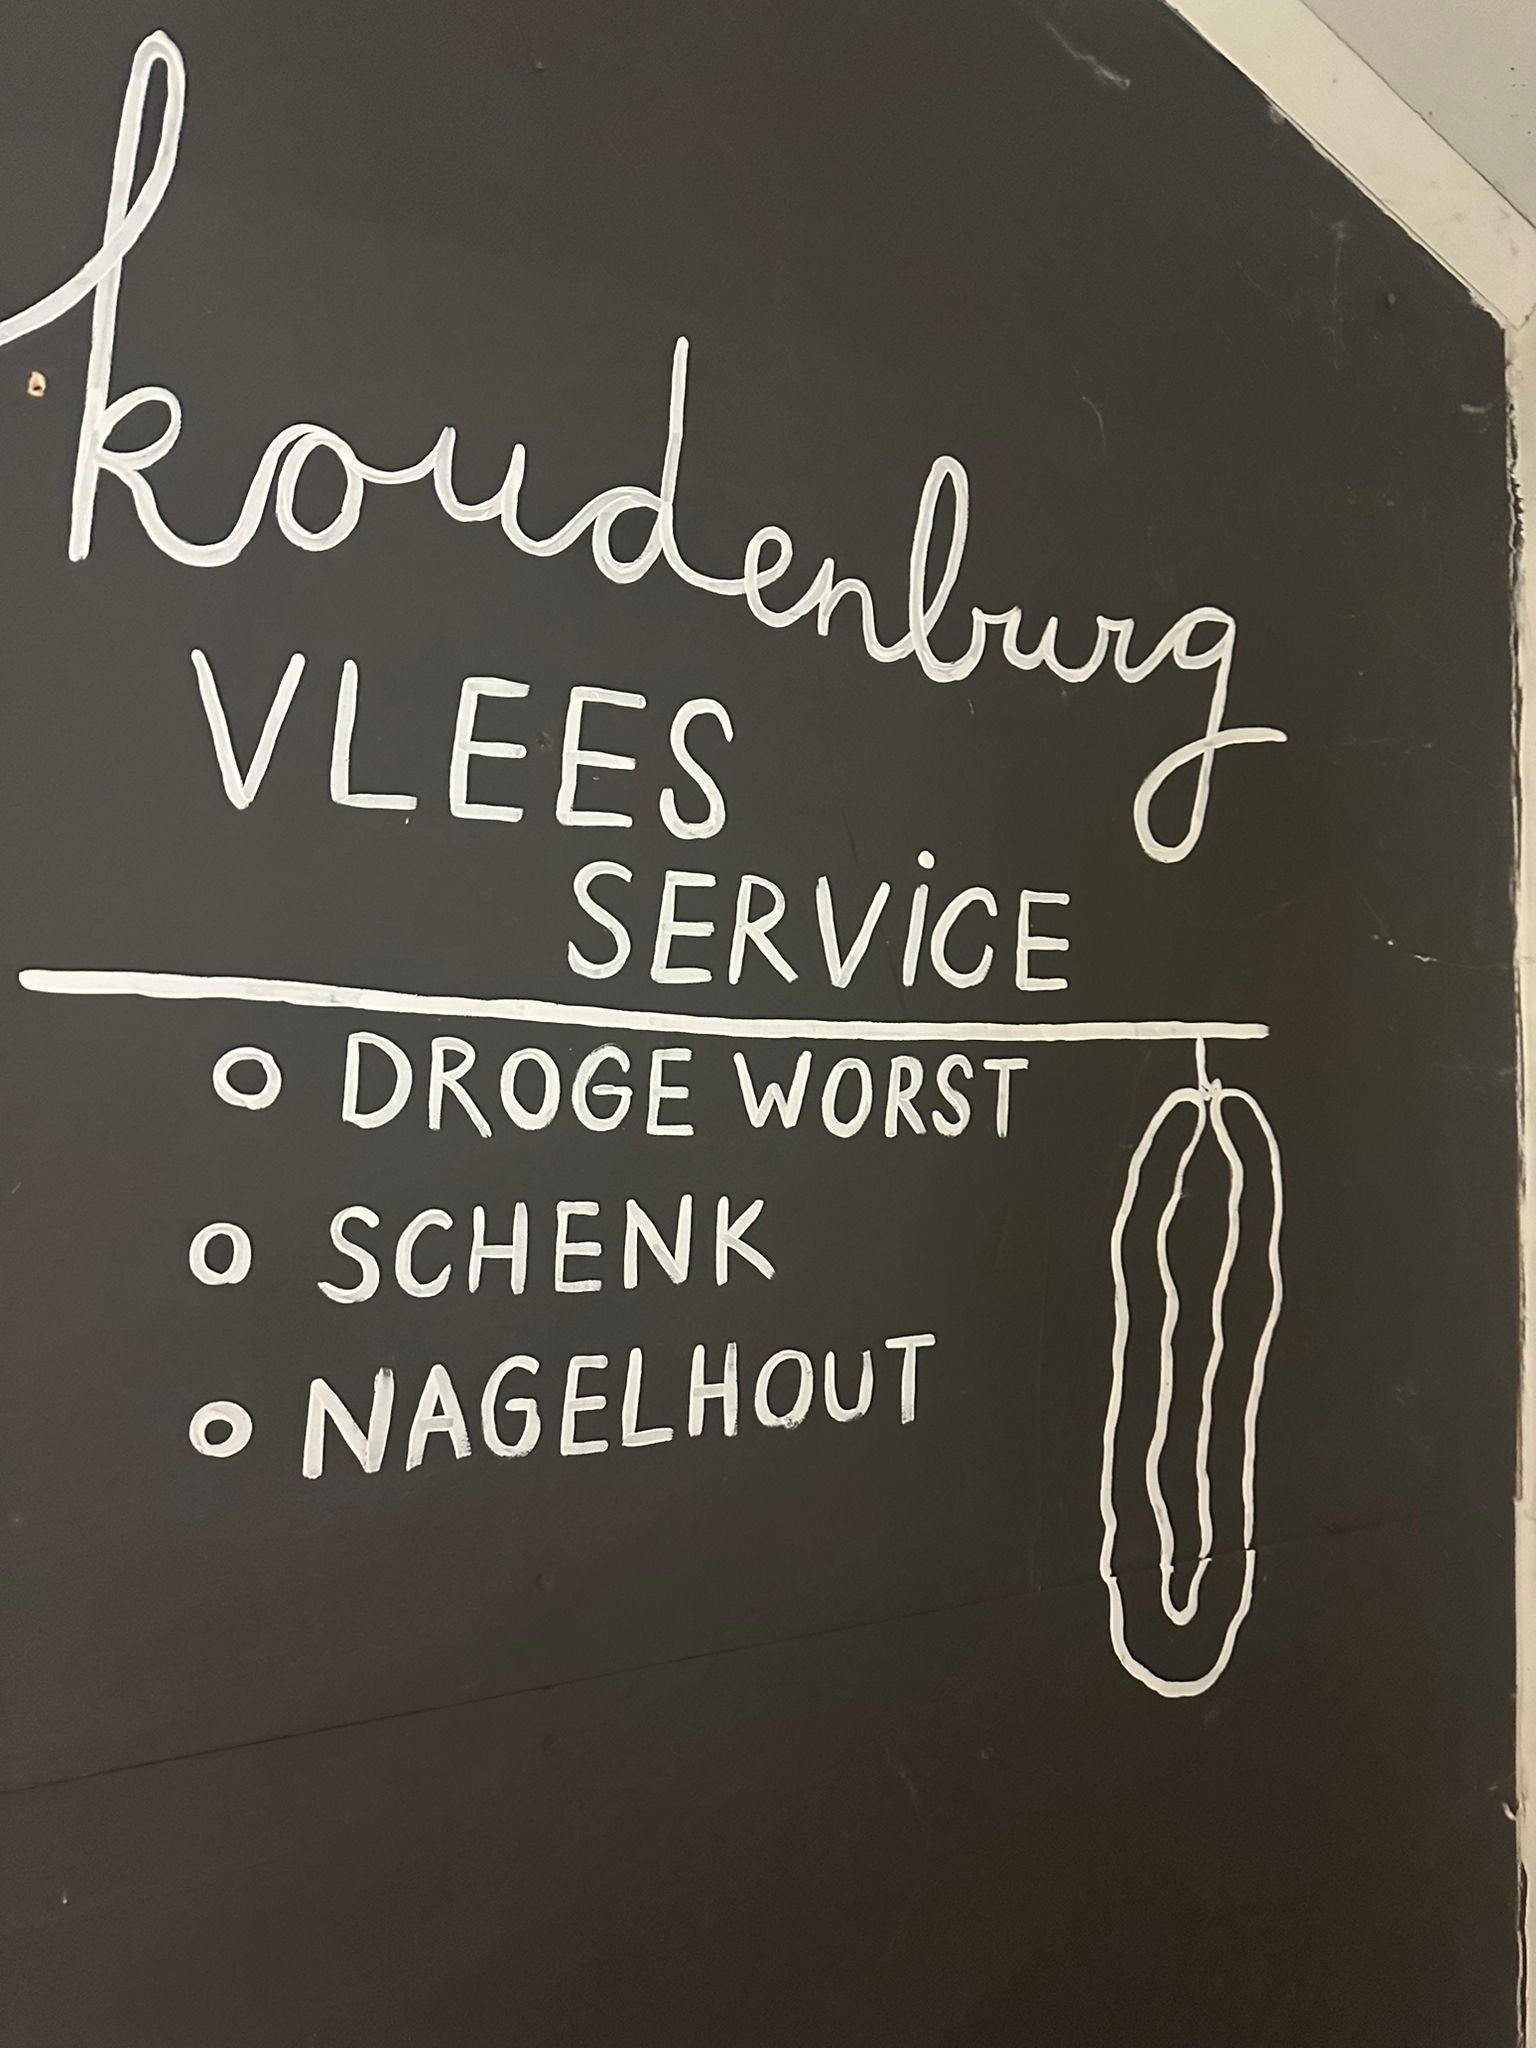 koudenburg
VLEES
SERVICE
DROGE WORST
SCHENK
NAGELHOUT